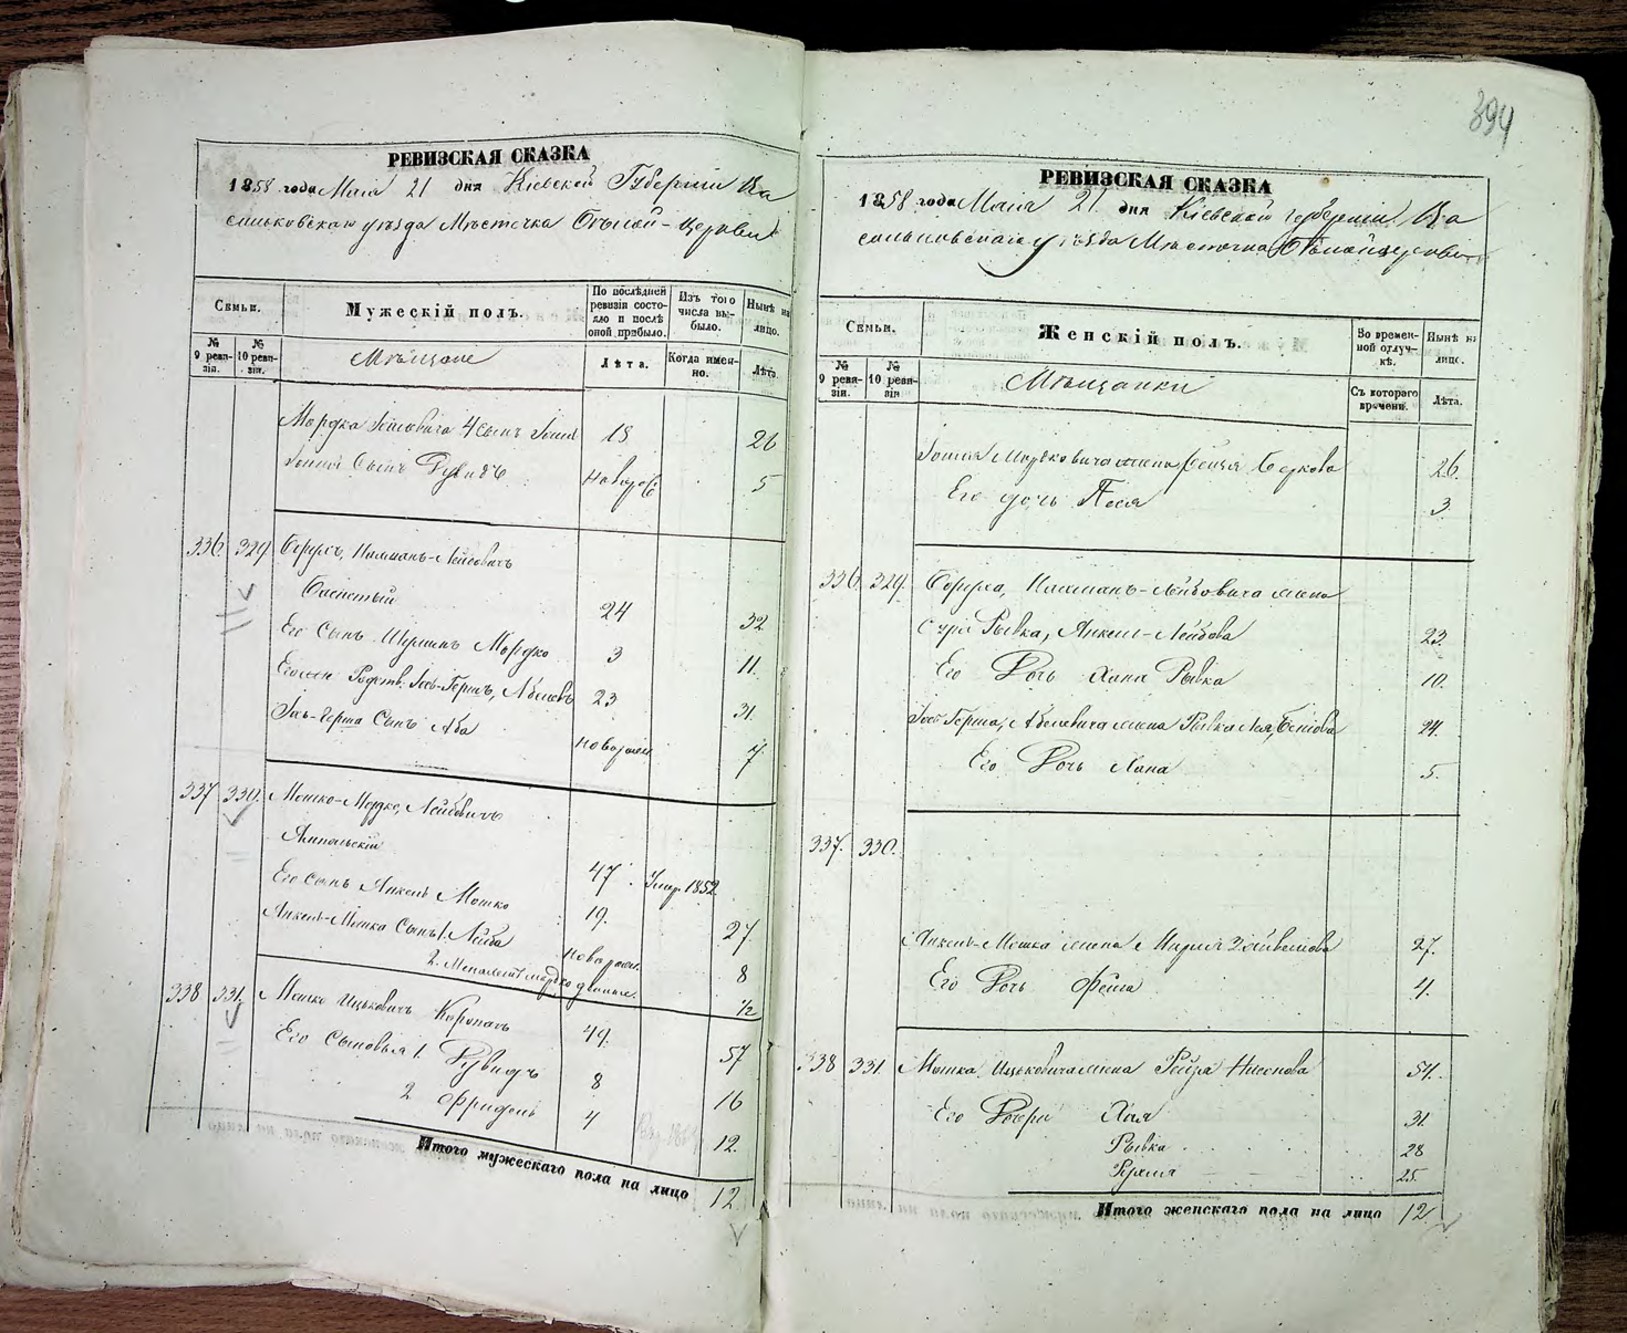 394
РЕВИЗСКАЯ СКАЗКА
1858 года Маія 21 дня Кіевской Губерніи Ва
сильковскаго уѣзда Мѣстечка Бѣлой-Церкви
Семьи.
Мужескій полъ.
По послѣдней ревизіи состояло и послѣ оной прибыло.
Изъ того числа выбыло.
Нынѣ на лицо.
№ 9 ревизіи.
№ 10 ревизіи.
Мѣщане
Лѣта.
Когда именно.
Лѣта
Мордка Лейбовича 4 сынъ 18 26
Сынъ Рувинъ новорож 5
336 329 Нахманъ-Лейбовичъ
24 32
Его Сынъ Мордко 3 11
Родств. Іось-Герш, Абелевъ 23 31
Іось-Герша Сынъ Аба новорожд 7
337 330. Мошко-Мордко, Лейбовичъ
Ямпольскій 47 Умер. 1852
Его сынъ Янкель Мошко 19. 27.
Янкель-Мошка Сынъ 1. Лейба новорож. 8
2. мордко 1/2
338 331. Мошко Ицковичъ 49. 57
Его Сыновья 1. Рувинъ 8 16
2 Фридель 4 12.
Итого мужескаго пола на лицо 12
РЕВИЗСКАЯ СКАЗКА
1858 года Маія 21 дня Кіевской губерніи Ва
сильковскаго уѣзда Мѣстечка Бѣлойцеркви
Семьи.
Женскій полъ.
Во временной отлучкѣ.
Нынѣ на лицо.
№ 9 ревизіи.
№ 10 ревизіи
Мѣщанки
Съ котораго времени.
Лѣта.
Мордковича жена Беркова 26.
Его дочь Песя 3
336 329. Нахманъ-Лейбовича жена
Рывка, Янкель-Лейбова 23.
Его Дочь Хана Рывка 10.
Іось Герша, Абелевича жена Рывка Лея, 24.
Его Дочь Хана 5.
337. 330.
Янкель-Мошка жена Мария 27.
Его Дочь Фейга 4.
338 331. Мошка Ицковича жена Рейза 54.
Его Дочери Хая 31.
Рывка 28
25.
Итого женскаго пола на лицо 12.